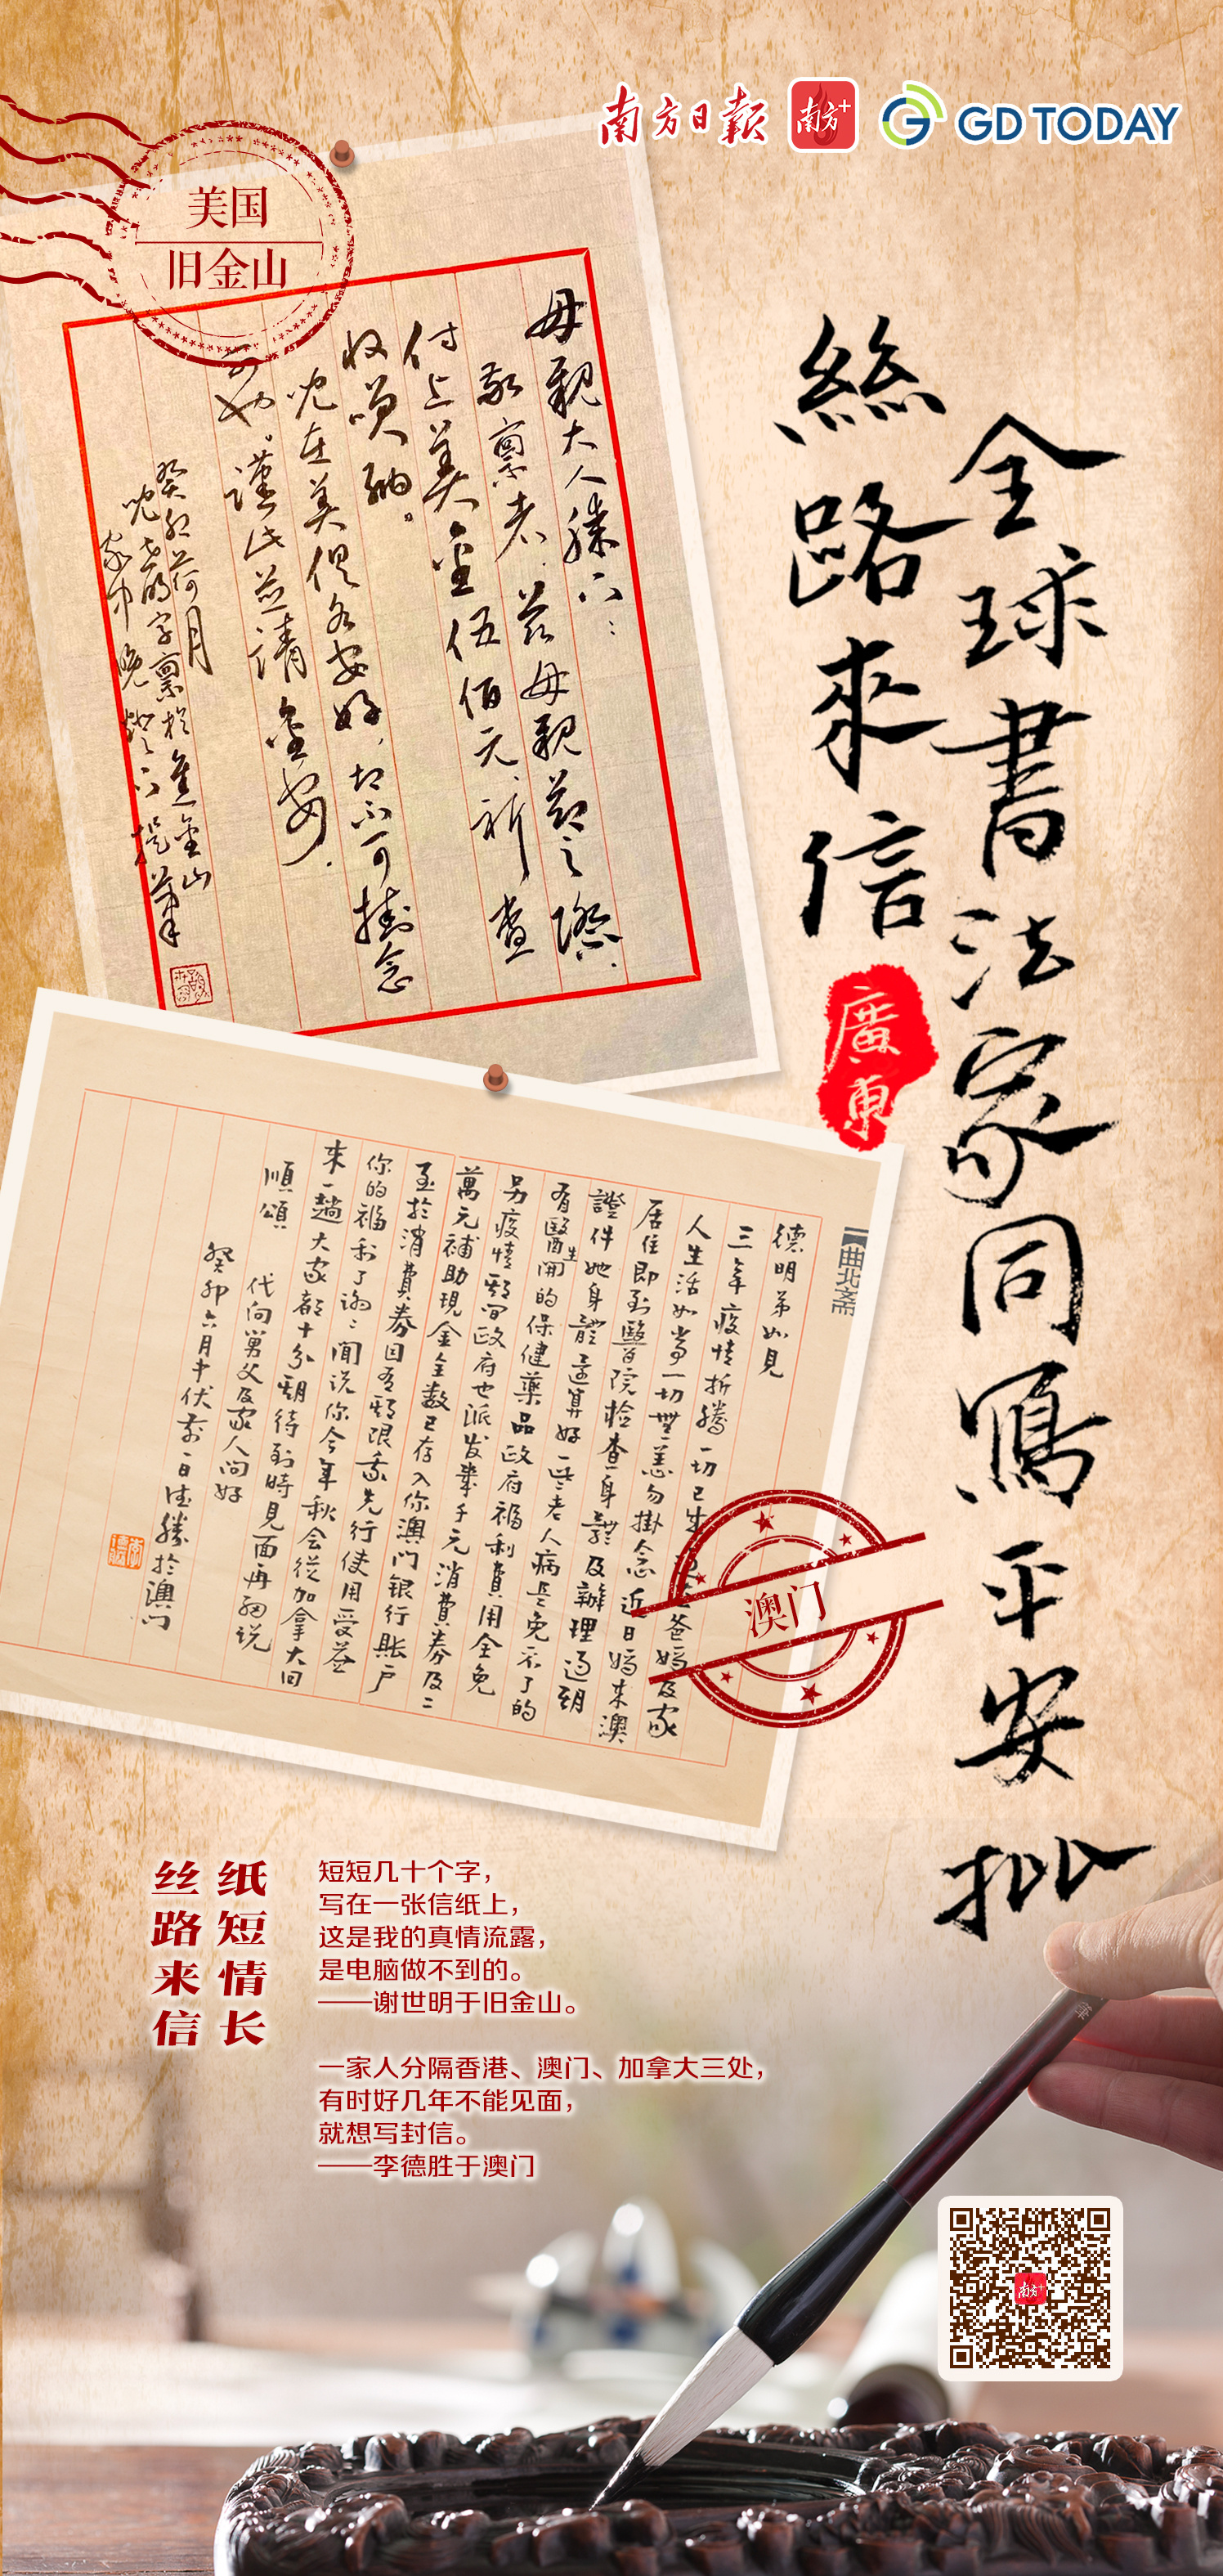 南方日报
南方+
GD TODAY
美国
旧金山
全球書法家同寫平安批
絲路來信
廣東
母親大人膝下：
敬禀者，兹母親節之際，
付上美金伍佰元，祈查
收哂納。
兒在美俱各安好，切不可掛念
可也。謹此并請金安。
癸卯荷月
曲北斋
德明弟如見
三年疫情折騰一切已
爸媽及家
人生活如常一切無恙勿掛念近日媽來澳
居住即到醫院檢查身體及辦理過期
證件她身體還算好一些老人病是免不了的
有醫生開的保健藥品政府福利費用全免
另疫情期間政府也派发業千元消費券及二
萬元補助現金全數已存入你澳门银行賬户
至於消費券因有期限我先行使用受益
你的福利了謝谢聞説你今年秋会從加拿大回
來一趟大家都十分期待到時見面再细说
順頌
代向舅父及家人问好
癸卯六月中伏前一日德勝於澳门
澳门
纸短情长
丝路来信
短短几十个字，
写在一张信纸上，
这是我的真情流露，
是电脑做不到的。
——谢世明于旧金山。
一家人分隔香港、澳门、加拿大三处，
有时好几年不能见面，
就想写封信。
——李德胜于澳门
南方+